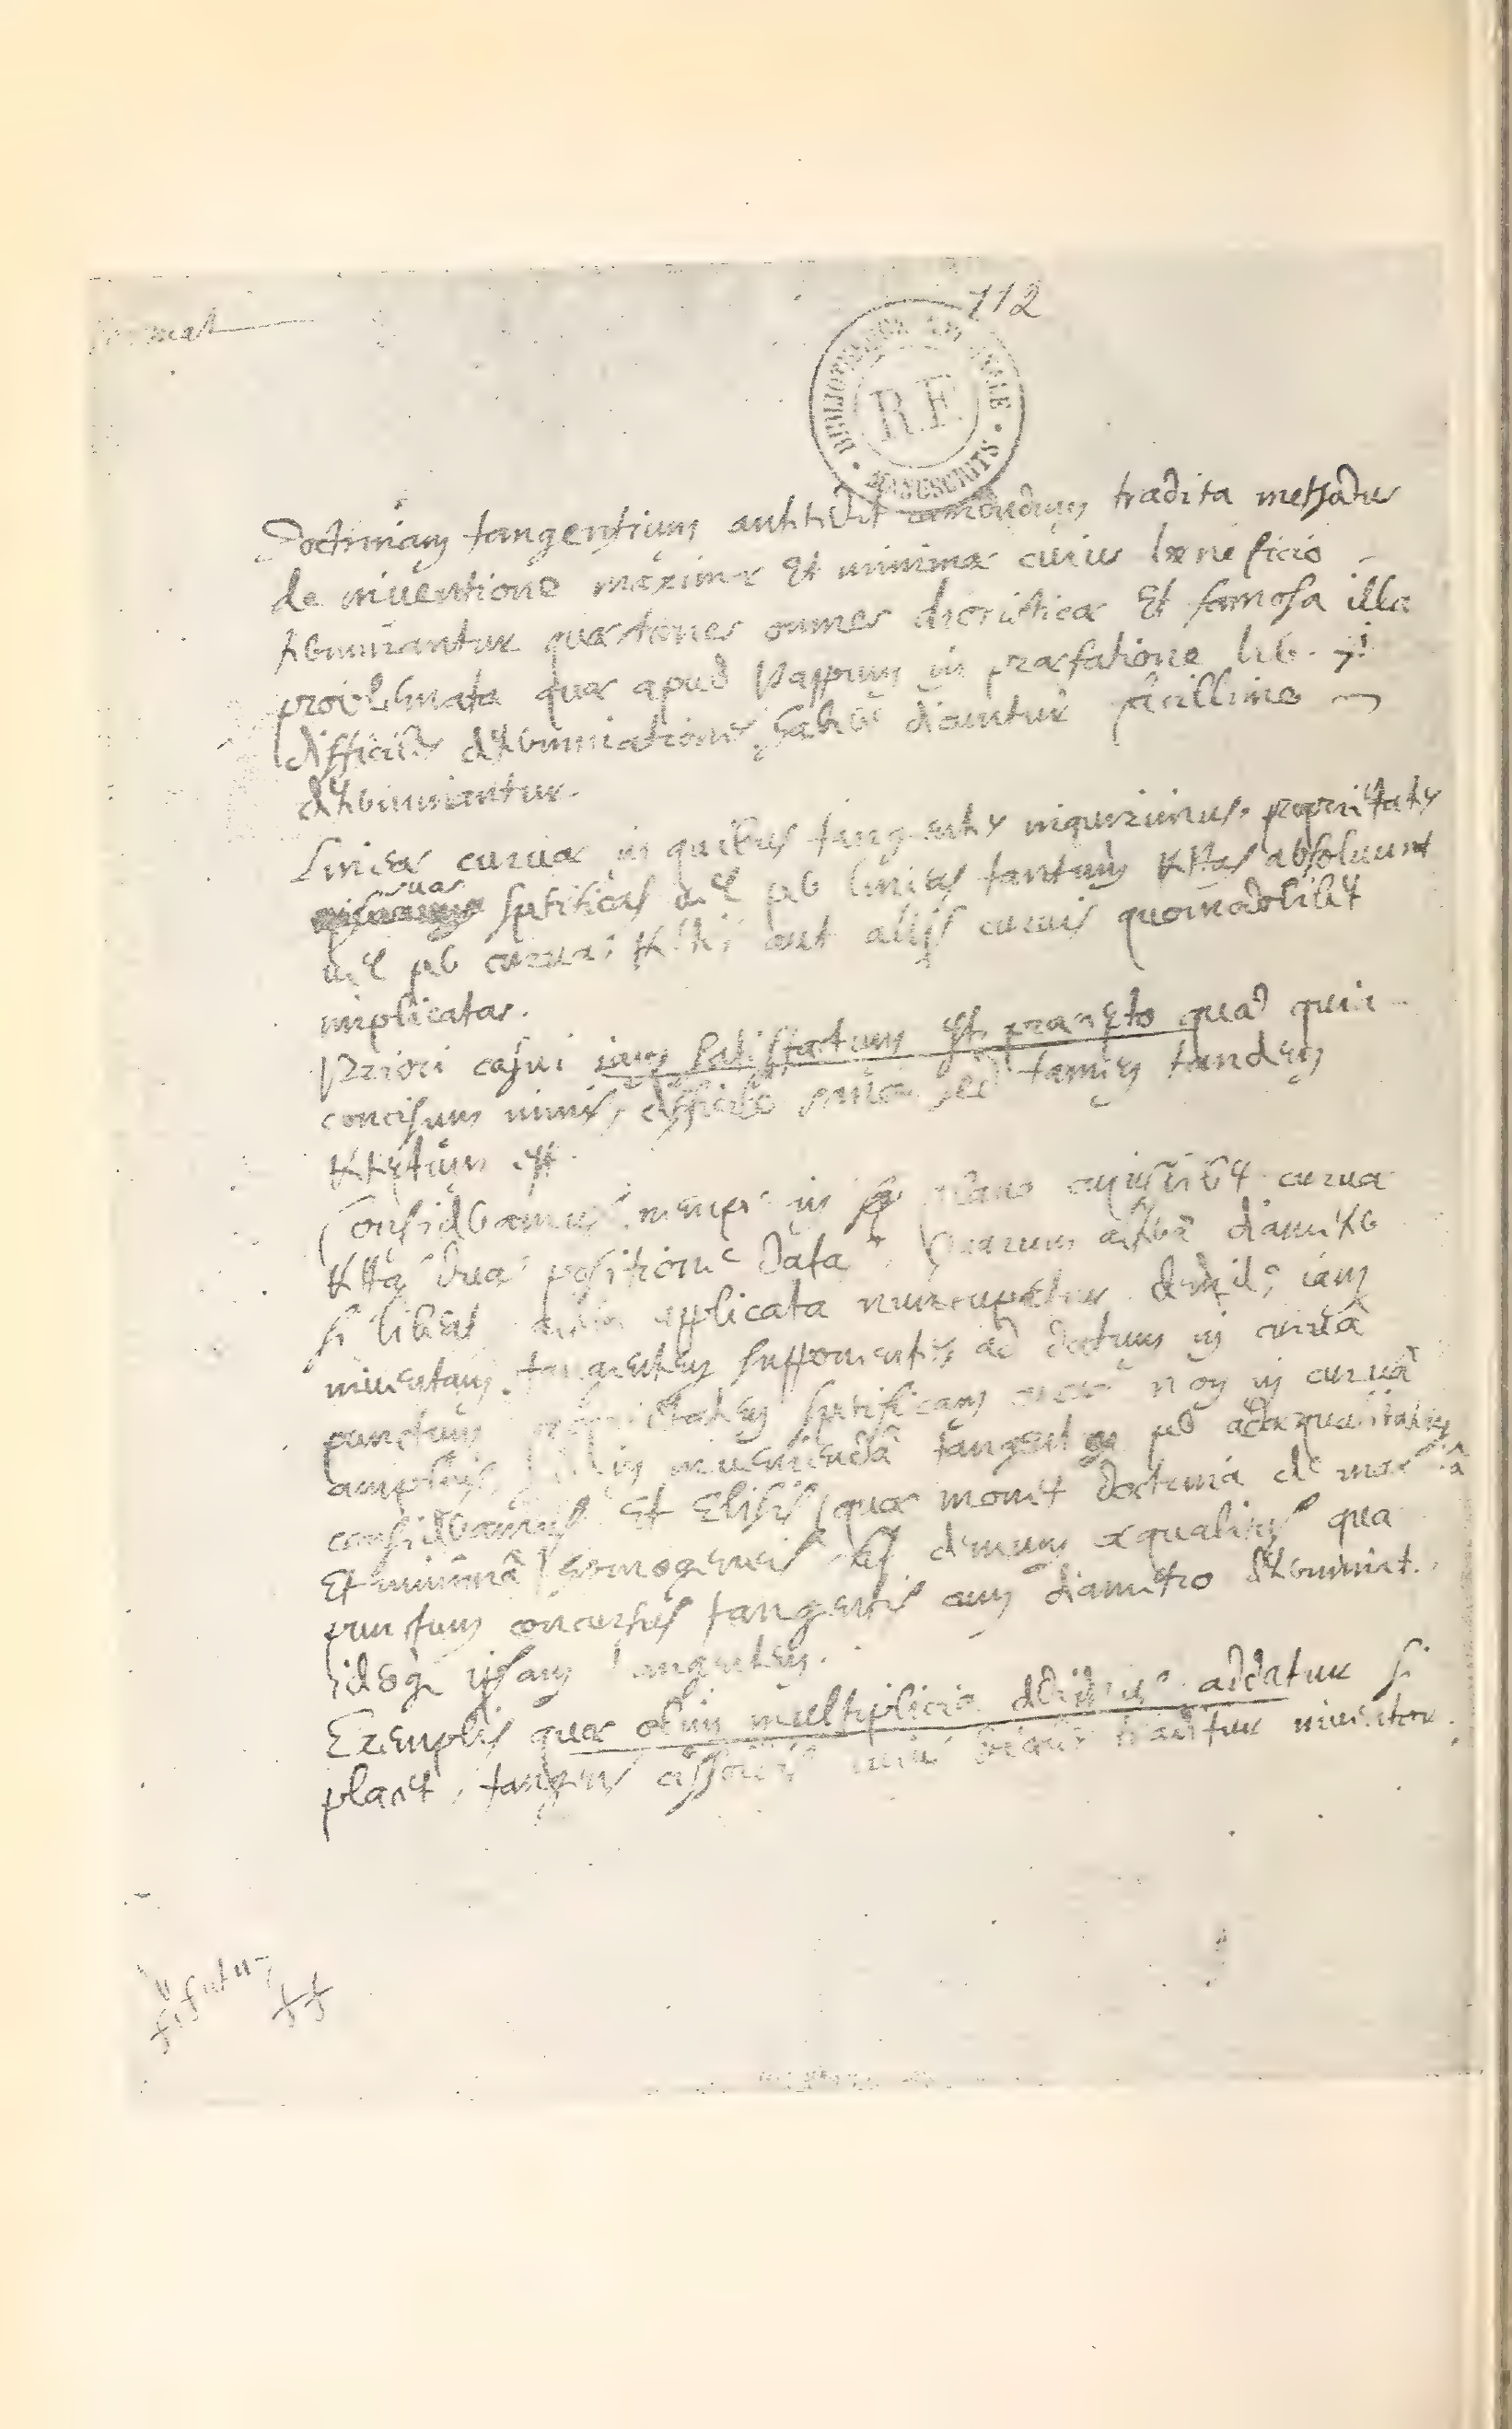 112
BIBLIOTHEQUE NATIONALE
R.F.
MANUSCRITS
Doctrinam tangentium antecedit iamdudum tradita methodus
de inventione maximæ et minimæ cuius beneficio
terminantur quæstiones omnes dioristicæ et famosa illa
problemata quæ apud Pappum in præfatione lib. 7i
difficiles determinationes habere dicuntur facillime
determinantur.
Lineæ curvæ in quibus tangentes inquirimus, proprietates
suas specificas vel per lineas tantum rectas absolvunt
vel per curvas rectis aut aliis curvis quomodolibet
implicatas.
Priori casui iam satisfactum est præcepto quod quia
concisum nimis, difficile sane, sed tamen tandem
repertum est.
Consideramus nempe in plano cuiuslibet curvæ
rectas duas positione datas, quarum altera diameter
si libeat, altera applicata nuncupetur. deinde iam
inventam tangentem supponentes ad datum in curva
punctum, proprietatem specificam curvæ non in curva
amplius, sed in invenienda tangente per adæqualitatem
consideramus et elisis (quæ monet doctrina de maxima
et minima) homogeneis fit demum æqualitas quæ
punctum concursus tangentis cum diametro determinat.
ideoque ipsam tangentem.
Exemplis quæ olim multiplicia dedimus addatur si
placet, tangens cissoidis cuius Diocles traditur inventor.